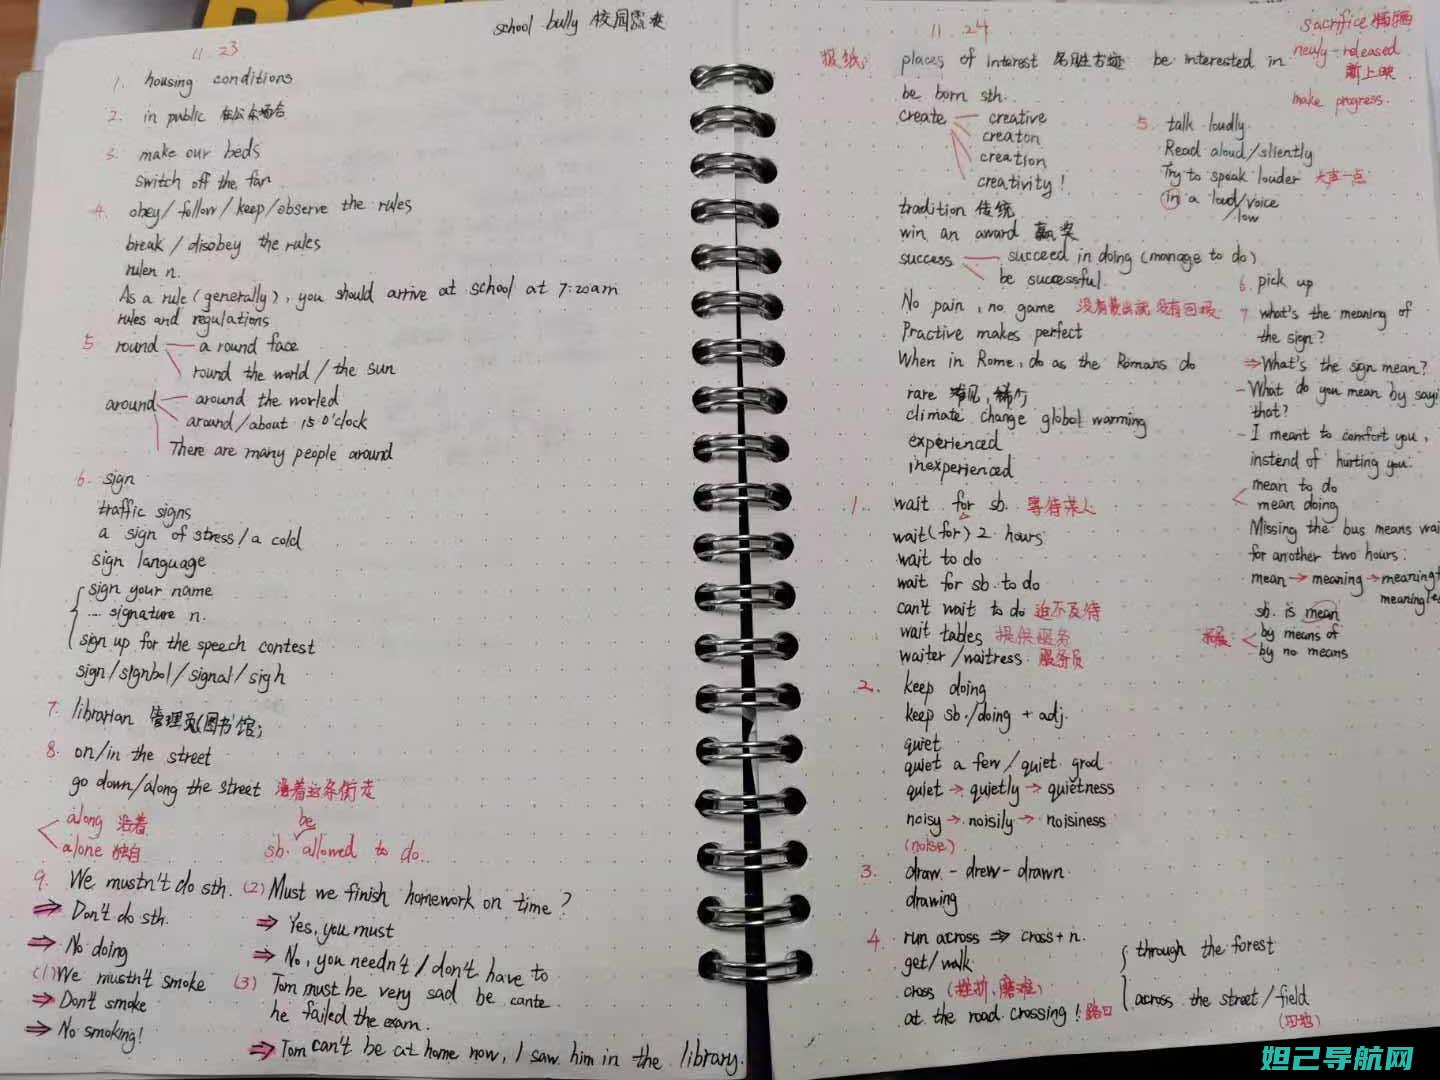 school bully 校园霸凌
11.23
1. housing conditions
2. in public 在公共场合
3. make our beds
switch off the fan
4. obey/follow/keep/observe the rules
break/disobey the rules
rulen n.
As a rule (generally), you should arrive at school at 7:20am
rules and regulations
5 round — a round face
round the world / the sun
around — around the worled
around/about 15 o'clock
There are many people around
6. sign
traffic signs
a sign of stress/a cold
sign language
sign your name
... signature n.
sign up for the speech contest
sign/signbol/signal/sigh
7. librarian 管理员(图书馆)
8. on/in the street
go down/along the street 沿着这条街走
along 沿着
alone 独自
be
sb. allowed to do.
9. We mustn't do sth.
⇒ Don't do sth.
⇒ No doing
(1) We mustn't smoke
⇒ Don't smoke
⇒ No smoking!
(2) Must we finish homework on time?
⇒ Yes, you must
⇒ No, you needn't/don't have to
(3) Tom must be very sad be cante
he failed the exam.
⇒ Tom can't be at home now, I saw him in the library.
11.24
报纸: places of interest 名胜古迹 be interested in
be born sth.
create — creative
creaton
creation
creativity!
tradition 传统
win an award 赢奖
success — succeed in doing (manage to do)
be successful
No pain, no game
Practive makes perfect
When in Rome, do as the Romans do
rare 罕见,稀有
climate change global warming
experienced
inexperienced
1. wait for sb. 等待某人
wait (for) 2 hours
wait to do
wait for sb. to do
can't wait to do 迫不及待
wait tables 提供服务
waiter/waitress 服务员
2. keep doing
keep sb./doing + adj.
quiet
quiet a few/quiet grod
quiet → quietly → quietness
noisy → noisily → noisiness
(noise)
3. draw - drew - drawn
drawing
4. run across ⇒ cross + n.
get/walk
cross (挫折、磨难)
at the road crossing! 路口
through the forest
across the street/field
(田地)
sacrifice 牺牲
newly-released
新上映
make progress.
5. talk loudly
Read aloud/sliently
Try to speak louder 大声一点
in a loud/voice
/low
6. pick up
7 what's the meaning of
the sign?
⇒ What's the sign mean?
- What do you mean by sayi
that?
- I meant to comfort you,
instend of hurting you.
mean to do
mean doing
Missing the bus means wai
for another two hours.
mean → meaning → meaning
sb. is mean
by means of
by no means
妲己导航网